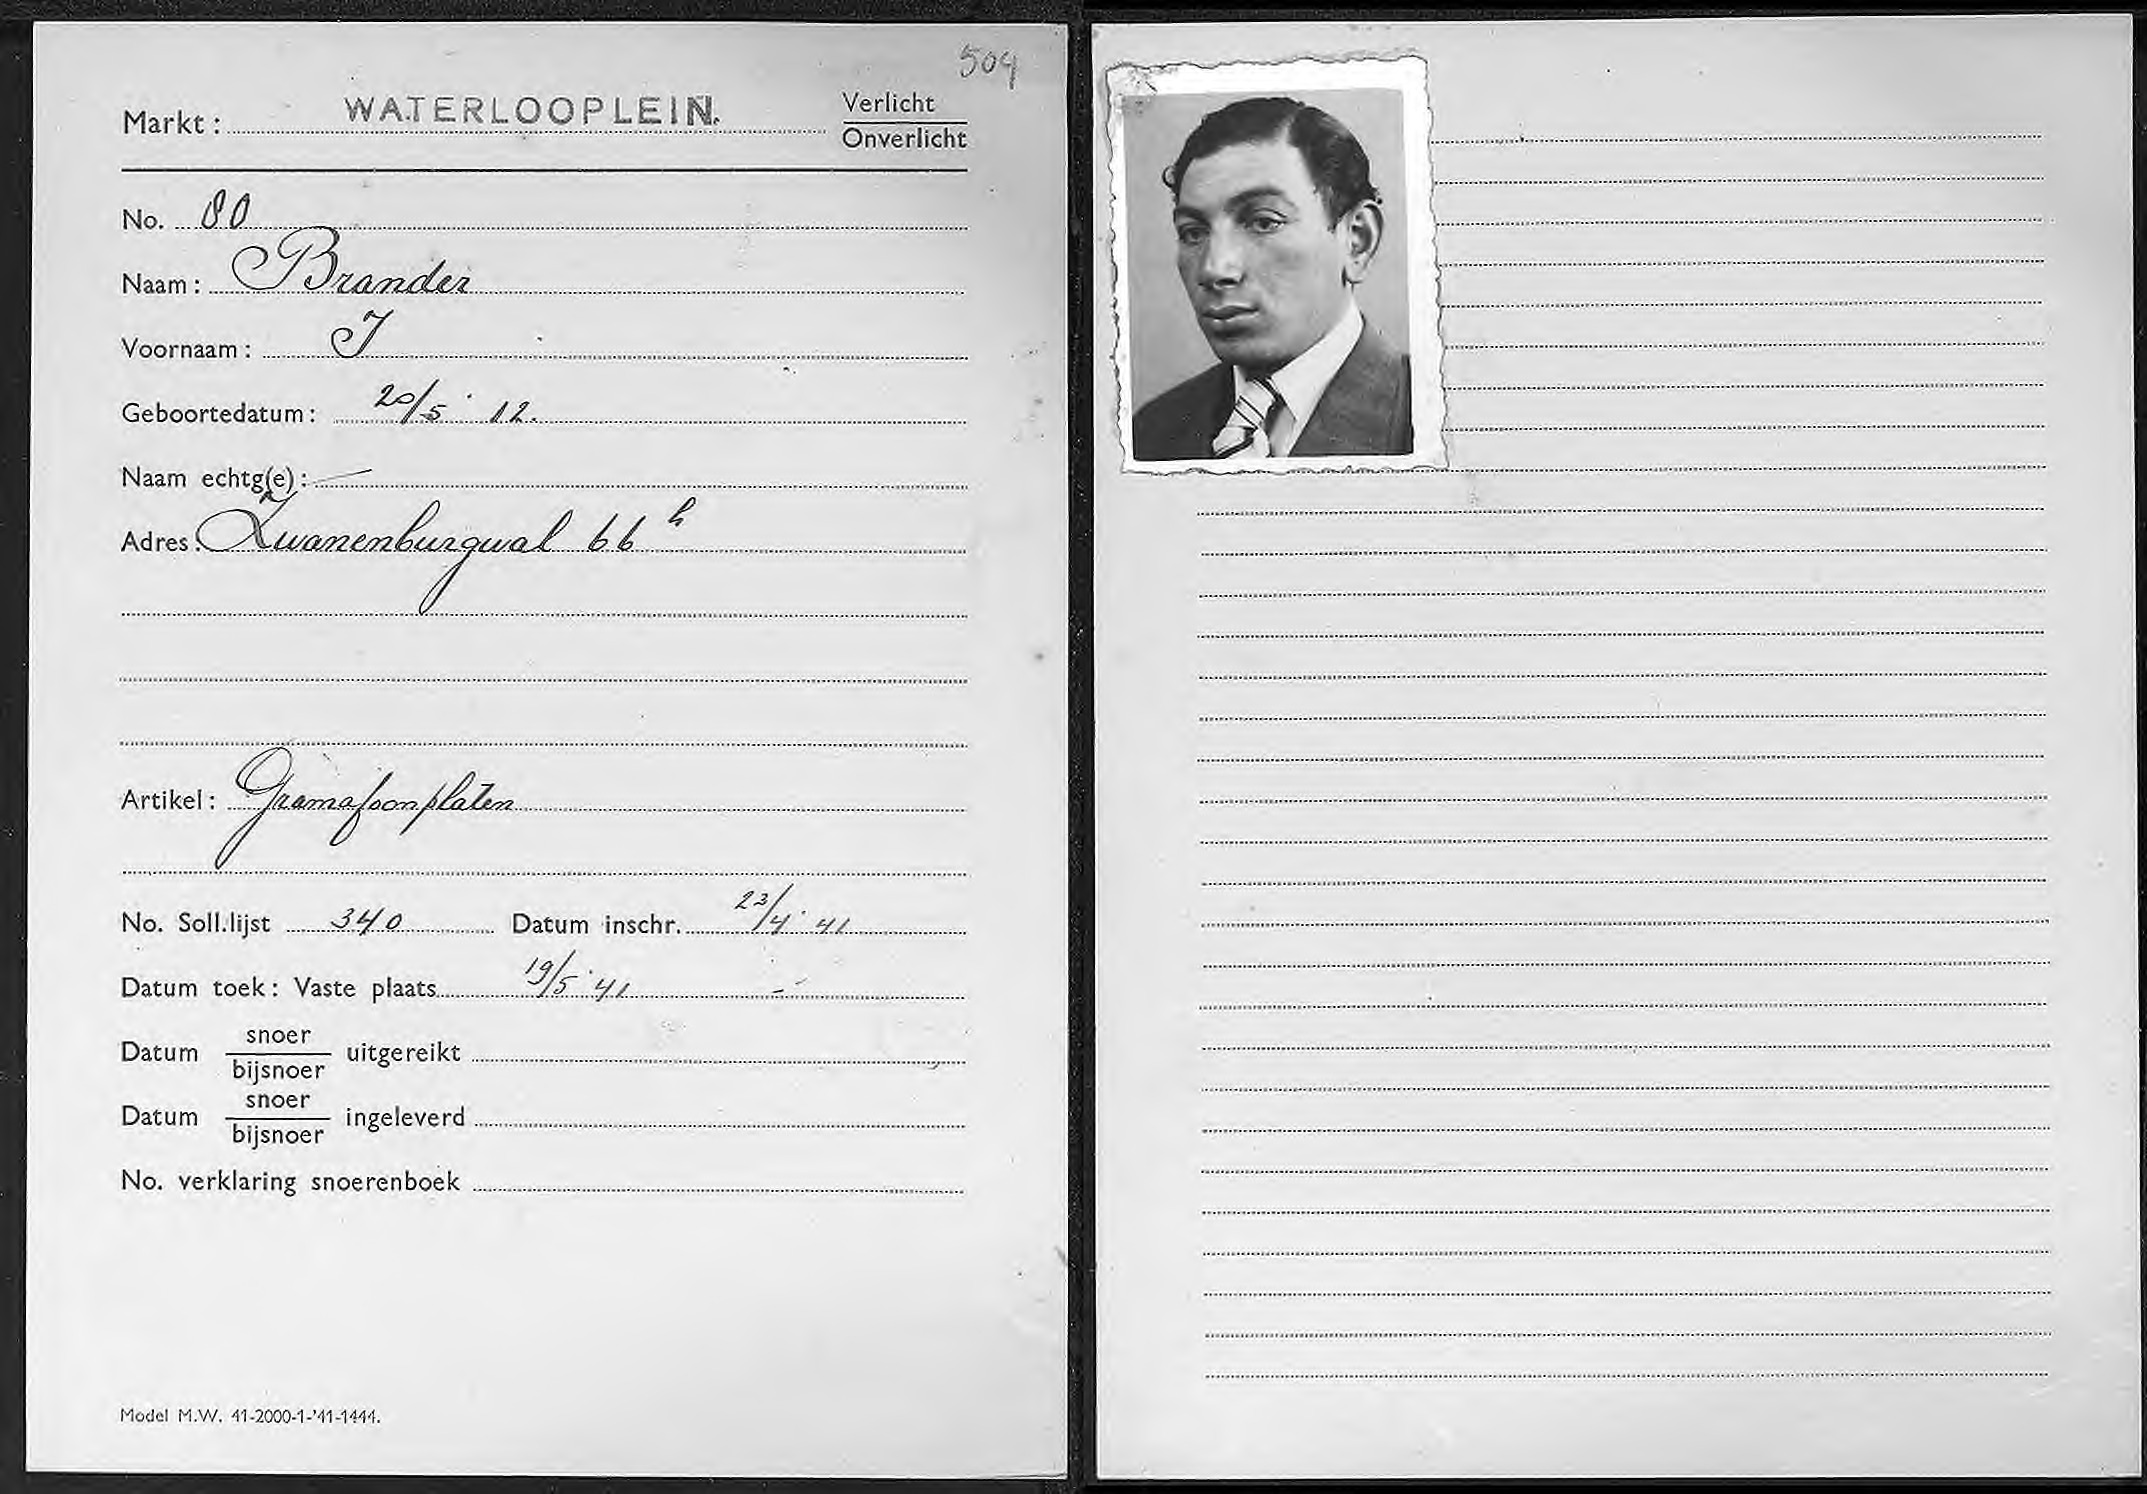 504
Markt : WATERLOOPLEIN. Verlicht
Onverlicht
No. 80
Naam : Brander
Voornaam : J
Geboortedatum : 20/5 ' 12.
Naam echtg(e) : —
Adres : Zwanenburgwal 66 h
Artikel : Gramafoonplaten
No. Soll.lijst 340 Datum inschr. 23/4 ' 41
Datum toek : Vaste plaats 19/5 ' 41
Datum snoer/bijsnoer uitgereikt
Datum snoer/bijsnoer ingeleverd
No. verklaring snoerenboek
Model M.W. 41-2000-1-'41-1444.